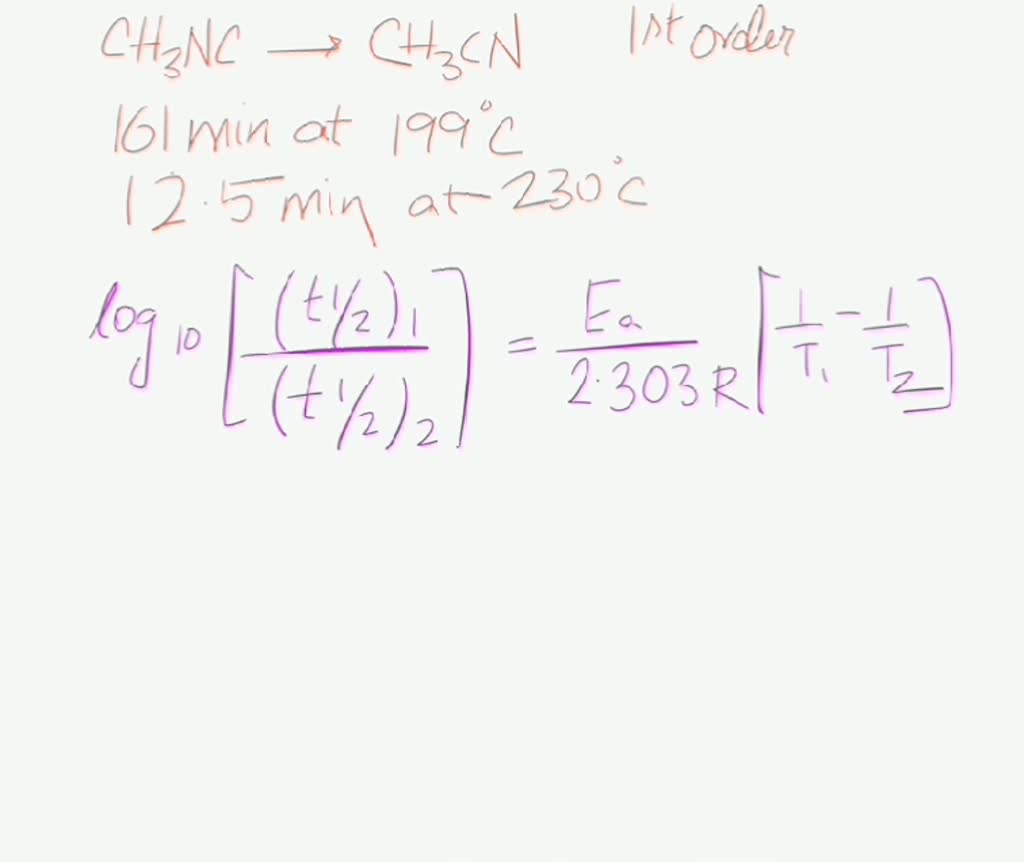 CH₃NC → CH₃CN 1st order
161 min at 199°C
12.5 min at 230°C
log₁₀ [(t½)₁ / (t½)₂] = Ea / 2.303 R [1/T₁ - 1/T₂]